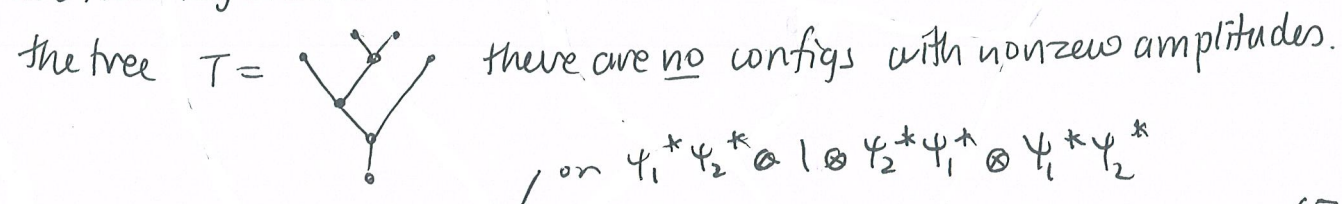 the tree T = there are no configs with nonzero amplitudes.
, on ψ₁*ψ₂* ⊗ 1 ⊗ ψ₂*ψ₁* ⊗ ψ₁*ψ₂*